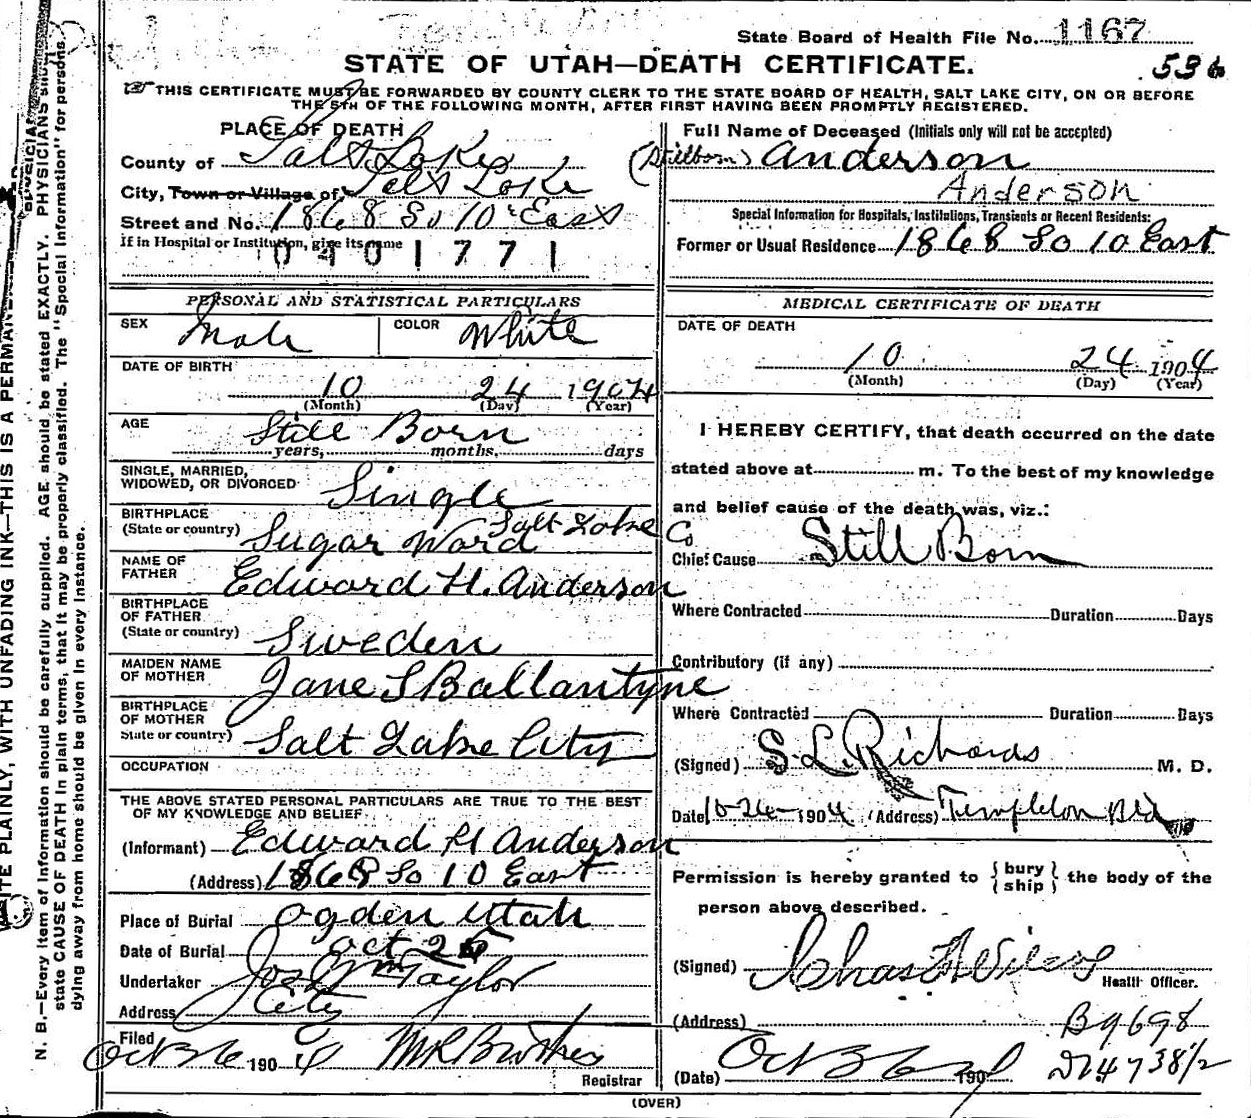 State Board of Health File No. 1167
STATE OF UTAH—DEATH CERTIFICATE.
536
THIS CERTIFICATE MUST BE FORWARDED BY COUNTY CLERK TO THE STATE BOARD OF HEALTH, SALT LAKE CITY, ON OR BEFORE
THE 5TH OF THE FOLLOWING MONTH, AFTER FIRST HAVING BEEN PROMPTLY REGISTERED.
PLACE OF DEATH
County of Salt Lake
City, Town or Village of Salt Lake
Street and No. 1868 So 10 East
If in Hospital or Institution, give its name
0401771
PERSONAL AND STATISTICAL PARTICULARS
SEX Male COLOR White
DATE OF BIRTH
10 24 1904
(Month) (Day) (Year)
AGE Still Born
years, months, days
SINGLE, MARRIED,
WIDOWED, OR DIVORCED Single
BIRTHPLACE Salt Lake Co
(State or country) Sugar Ward
NAME OF
FATHER Edward H. Anderson
BIRTHPLACE
OF FATHER
(State or country) Sweden
MAIDEN NAME
OF MOTHER Jane S Ballantyne
BIRTHPLACE
OF MOTHER
State or country) Salt Lake City
OCCUPATION
THE ABOVE STATED PERSONAL PARTICULARS ARE TRUE TO THE BEST
OF MY KNOWLEDGE AND BELIEF
(Informant) Edward H Anderson
(Address) 1868 So 10 East
Place of Burial Ogden Utah
Date of Burial Oct 25
Undertaker Jos Wm Taylor
Address City
Filed
Oct 26 1904
Registrar
Full Name of Deceased (Initials only will not be accepted)
(Stillborn) Anderson
Anderson
Special Information for Hospitals, Institutions, Transients or Recent Residents:
Former or Usual Residence 1868 So 10 East
MEDICAL CERTIFICATE OF DEATH
DATE OF DEATH
10 24 1904
(Month) (Day) (Year)
I HEREBY CERTIFY, that death occurred on the date
stated above at m. To the best of my knowledge
and belief cause of the death was, viz.:
Chief Cause Still Born
Where Contracted Duration Days
Contributory (if any)
Where Contracted Duration Days
(Signed) S. L. Richards M. D.
Date 10-26-1904 (Address) Templeton Bld
Permission is hereby granted to { bury
ship } the body of the
person above described.
(Signed)
Health Officer.
(Address) B9698
(Date) Oct 26 190
214738½
(OVER)
N. B.—Every item of information should be carefully supplied. AGE should be stated EXACTLY. PHYSICIANS
state CAUSE OF DEATH in plain terms, that it may be properly classified. The "Special Information" for persons
dying away from home should be given in every instance.
PLAINLY, WITH UNFADING INK—THIS IS A